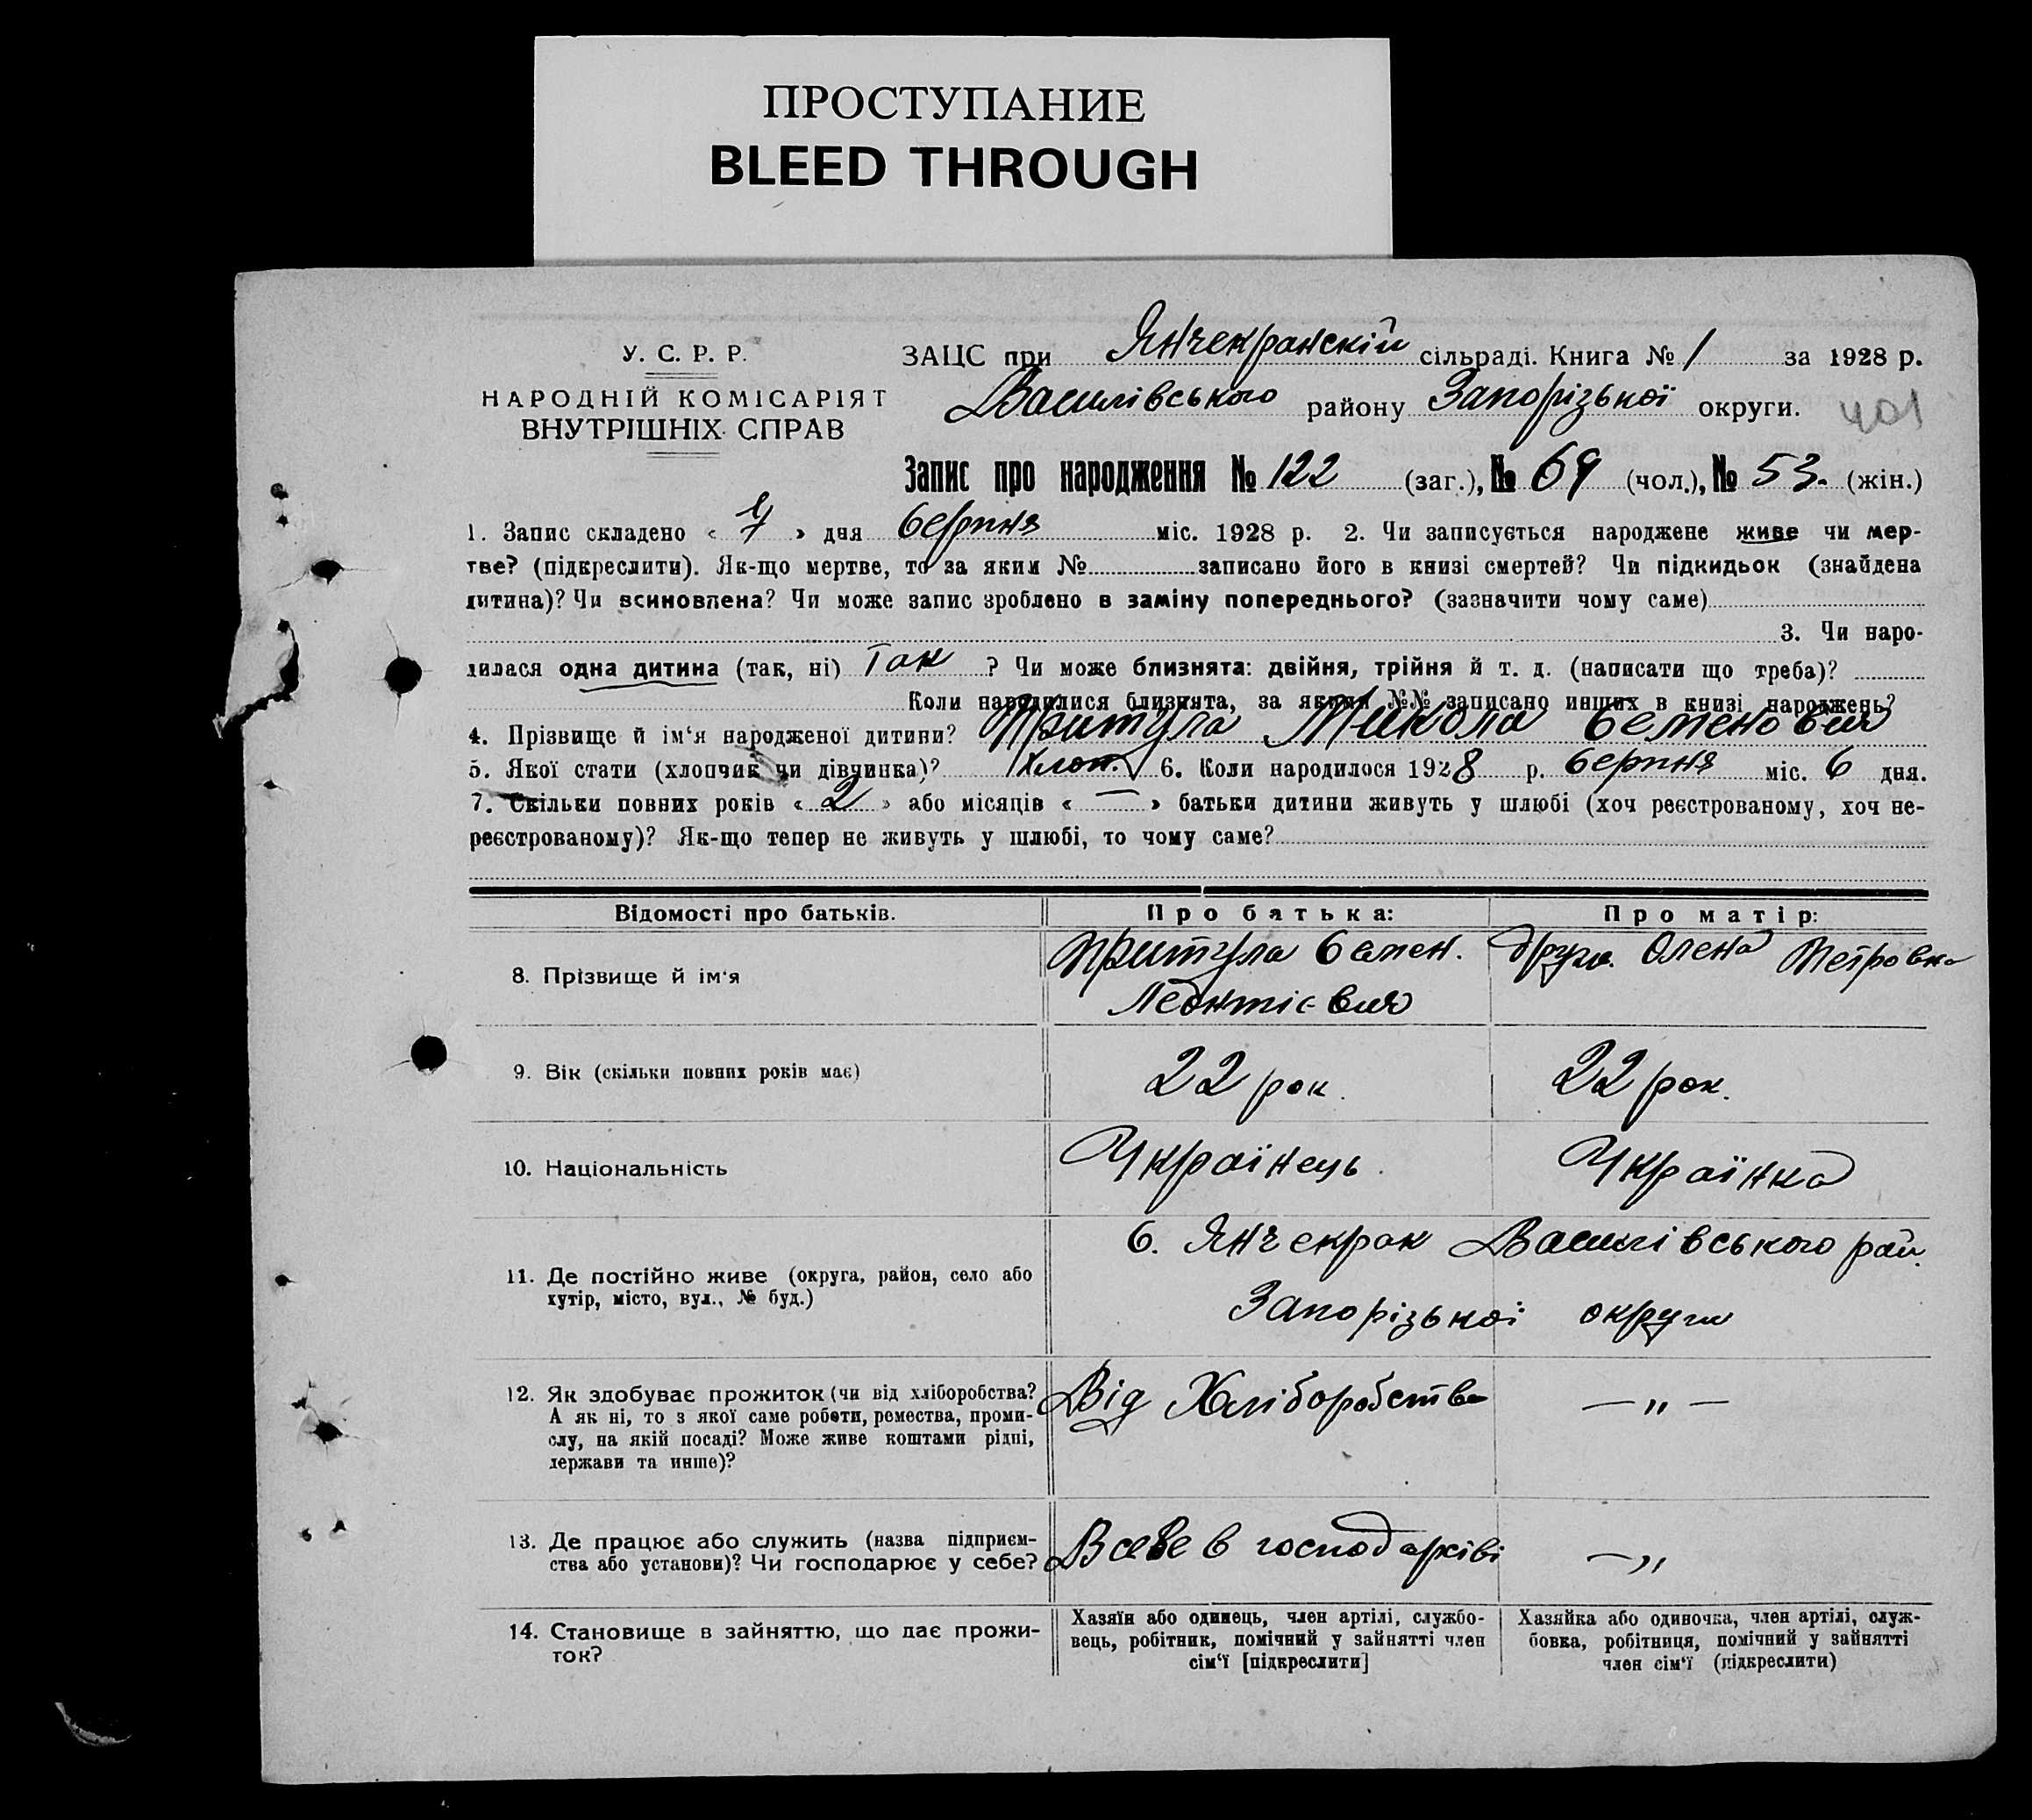 ПРОСТУПАНИЕ
BLEED THROUGH
У. С. Р. Р.
НАРОДНІЙ КОМІСАРІЯТ
ВНУТРІШНІХ СПРАВ
ЗАЦС при Янчекранскій сільраді. Книга № 1 за 1928 р.
Василівського району Запорізької округи. 401
Запис про народження № 122 (заг.), № 69 (чол.), № 53. (жін.)
1. Запис складено « 7 » дня серпня міс. 1928 р. 2. Чи записується народжене живе чи мер-
тве? (підкреслити). Як-що мертве, то за яким № записано його в книзі смертей? Чи підкидьок (знайдена
дитина)? Чи всиновлена? Чи може запис зроблено в заміну попереднього? (зазначити чому саме)
3. Чи наро-
дилася одна дитина (так, ні) Так ? Чи може близнята: двійня, трійня й т. д. (написати що треба)?
Коли народилися близнята, за якими №№ записано инших в книзі народжень?
4. Прізвище й ім‘я народженої дитини? Притула Микола Семенович
5. Якої стати (хлопчик чи дівчинка)? Хлоп. 6. Коли народилося 1928 р. серпня міс. 6 дня.
7. Скільки повних років « 2 » або місяців « — » батьки дитини живуть у шлюбі (хоч реєстрованому, хоч не-
реєстрованому)? Як-що тепер не живуть у шлюбі, то чому саме?
Відомості про батьків.
Про батька:
Про матір:
8. Прізвище й ім‘я
Притула Семен.
Леонтієвич
друж. Олена Петровна
9. Вік (скільки повних років має)
22 рок.
22 рок.
10. Національність
Українець.
Українка
11. Де постійно живе (округа, район, село або
хутір, місто, вул., № буд.)
с. Янчекрак Василівського рай.
Запорізької округи
12. Як здобуває прожиток (чи від хліборобства?
А як ні, то з якої саме роботи, ремества, проми-
слу, на якій посаді? Може живе коштами рідні,
держави та инше)?
Від Хліборобства
— „ —
13. Де працює або служить (назва підприєм-
ства або установи)? Чи господарює у себе?
В себе в господарстві
— „
14. Становище в зайняттю, що дає прожи-
ток?
Хазяїн або одинець, член артілі, службо-
вець, робітник, помічний у зайнятті член
сім‘ї [підкреслити]
Хазяйка або одиночка, член артілі, служ-
бовка, робітниця, помічний у зайнятті
член сім‘ї (підкреслити)